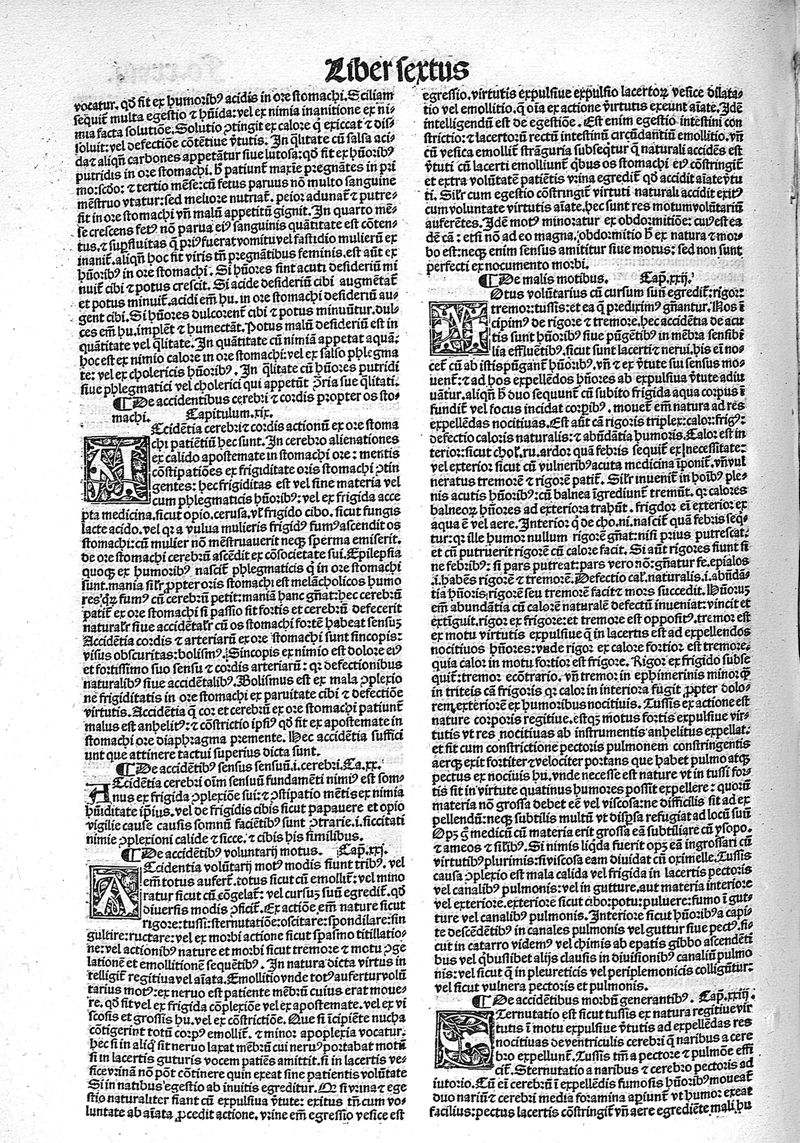 Liber sextus
vocatur. qď fit ex humoribꝰ acidis in ore stomachi. Sciliam
sequit̃ multa egestio ⁊ hũida: vel ex nimia inanitione ex ni⸗
mia facta solutiõe. Solutio ꝯtingit ex calore q̃ exiccat ⁊ dis⸗
soluit: vel defectiõe cõtẽtiue ṽtutis. In q̃litate cũ salsa aci⸗
da ⁊ aliqñ carbones appetãtur siue lutosa: qď fit ex hũoribꝰ
putridis in ore stomachi. ħ patiunt̃ maxie pregnãtes in pri
mo: scďo: ⁊ tertio mẽse: cũ fetus paruus nõ multo sanguine
mẽstruo vtatur: sed meliore nutriat̃. peior adunat̃ ⁊ putre⸗
fit in ore stomachi vñ malũ appetitũ gignit. In quarto mẽ⸗
se crescens fetꝰ nõ parua eiꝰ sanguinis quãtitate est cõten⸗
tus. ⁊ supfluitas q̃ priꝰ fuerat vomitu vel fastidio mulierũ ex
inanit̃. aliqñ hoc fit viris tm̃ pregnãtibus feminis. est aũt ex
hũoribꝰ in ore stomachi. Si hũores sint acuti desideriũ mi
nuit̃ cibi ⁊ potus crescit. Si acide desideriũ cibi augmẽtat̃
et potus minuit̃. acidi em̃ hu. in ore stomachi desideriũ au⸗
gent cibi. Si hũores dulcorent̃ cibi ⁊ potus minuũtur. dul⸗
ces em̃ hu. implẽt ⁊ humectãt. Potus malũ desideriũ est in
quãtitate vel q̃litate. In quãtitate cũ nimiã appetat aquã:
hoc est ex nimio calore in ore stomachi: vel ex salso phlegma
te: vel ex cholericis hũoribꝰ. In q̃litate cũ hũores putridi
siue phlegmatici vel cholerici qui appetũt ꝯ̃ria sue q̃litati.
¶ De accidentibus cerebri ⁊ cordis propter os sto⸗
machi. Capitulum.xix.
ACcidẽtia cerebri ⁊ cordis actionũ ex ore stoma
chi patiẽtiũ hec sunt. In cerebro alienationes
ex calido apostemate in stomachi ore: mentis
cõstipatiões ex frigiditate oris stomachi ꝯtin
gentes: hec frigiditas est vel sine materia vel
cum phlegmaticis hũoribꝰ: vel ex frigida acce
pta medicina. sicut opio. cerusa. vľ frigido cibo. sicut fungis
lacte acido. vel qꝛ a vulua mulieris frigidꝰ fumꝰ ascendit os
stomachi: cũ mulier nõ mẽstruauerit neqꝫ sperma emiserit.
de ore stomachi cerebrũ ascẽdit ex cõsocietate sui. Epilepsia
quoqꝫ ex humoribꝰ nascit̃ phlegmaticis q̃ in ore stomachi
sunt. mania silꝛ ꝓpter oris stomachi est melãcholicos humo
res qꝛꝫ fumꝰ cũ cerebrũ petit: mania hanc gñat: hec cerebrũ
patit̃ ex ore stomachi si passio sit fortis et cerebrũ defecerit
naturalꝛ siue accidẽtalꝛ cũ os stomachi fortẽ habeat sensuꝫ
Accidẽtia cordis ⁊ arteriarũ ex ore stomachi sunt sincopis:
visus obscuritas: bolismꝰ. Sincopis ex nimio est dolore eiꝰ
et fortissimo suo sensu ⁊ cordis arteriarũ: qꝛ defectionibus
naturalibꝰ siue accidẽtalibꝰ. Bolismus est ex mala ꝯplexio
ne frigiditatis in ore stomachi ex paruitate cibi ⁊ defectiõe
virtutis. Accidẽtia q̃ cor et cerebrũ ex ore stomachi patiunt̃
malus est anhelitꝰ: ⁊ cõstrictio ipsiꝰ qď fit ex apostemate in
stomachi ore diaphragma premente. Hec accidẽtia suffici
unt que attinere tactui superius dicta sunt.
¶ De accidẽtibꝰ sensus sensuũ .i. cerebri. Ca.xx.
ACcidẽtia cerebri oĩm sensuũ fundamẽti nimiꝰ est som⸗
nus ex frigida ꝯplexiõe sui: ⁊ ꝯstipatio mẽtis ex nimia
hũiditate ipsius. vel de frigidis cibis sicut papauere et opio
vigilie cause causis somnũ faciẽtibꝰ sunt ꝯtrarie .i. siccitati
nimie ꝯplexioni calide ⁊ sicce. ⁊ cibis his similibus.
¶ De accidẽtibꝰ voluntarij motus. Cap.xxj.
ACcidentia volũtarij motꝰ modis fiunt tribꝰ. vel
em̃ totus aufert̃. totus sicut cũ emollit̃: vel mino
ratur sicut cũ cõgelat̃: vel cursuꝫ suũ egredit̃. qď
diuersis modis ꝓficit̃. Ex actiõe em̃ nature sicut
rigore: tussi: sternutatiõe: oscitare: spondilare: sin
gultire: ructare: vel ex morbi actione sicut spasmo titillatio⸗
ne: vel actionibꝰ nature et morbi sicut tremore ⁊ motu ꝯge
lationẽ et emollitionẽ sequẽtibꝰ. In natura dicta virtus in
telligit̃ regitiua vel aĩata. Emollitio vnde totꝰ aufertur volũ
tarius motꝰ: ex neruo est patiente mẽbrũ cuius erat moue⸗
re. qď fit vel ex frigida cõplexiõe vel ex apostemate. vel ex vi
scosis et grossis hu. vel ex cõstrictiõe. Que si ĩcipiẽte nucha
cõtigerint totũ corpꝰ emollit̃. ⁊ minor apoplexia vocatur.
hec si in aliq̃ sit neruo laxat mẽbrũ cui neruꝰ portabat motũ
si in lacertis guturis vocem patiẽs amittit. si in lacertis ve⸗
sice vrinã nõ põt cõtinere quin exeat sine patientis volũtate
Si in natibus egestio ab inuitis egreditur. Qꝛ si vrina ⁊ ege
stio naturaliter fiant cũ expulsiua ṽtute: exitus tñ cum vo⸗
luntate ab aĩata ꝓcedit actione. vrine em̃ egressio vesice est
egressio. virtutis expulsiue expulsio lacertoꝝ vesice dilata⸗
tio vel emollitio. q̃ oĩa ex actione ṽirtutis exeunt aĩate. Idẽ
intelligendũ est de egestiõe. Est enim egestio intestini con
strictio: ⁊ lacertorũ rectũ intestinũ circũdantiũ emollitio. vñ
cũ vesica emollit̃ strãguria subsequitꝛ q̃ naturali accidẽs est
ṽtuti cũ lacerti emolliunt̃ qbus os stomachi eiꝰ cõstringit̃
et extra volũtatẽ patiẽtis vrina egredit̃ qď accidit aĩate ṽtu
ti. Silꝛ cum egestio cõstringit̃ virtuti naturali accidit exitꝰ
cum voluntate virtutis aĩate. hec sunt res motum volũtariũ
auferẽtes. Idẽ motꝰ minoratur ex obdormitiõe: cuiꝰ est ea
dẽ cã: etsi nõ ad eo magna. obdormitio ħ ex natura ⁊ mor⸗
bo est: neqꝫ enim sensus amititur siue motus: sed non sunt
perfecti ex nocumento morbi.
¶ De malis motibus. Cap.xxij.
MOtus voluntarius cũ cursum suũ egredit̃: rigor:
tremor: tussis: et ea q̃ predixim̃ gñantur. Nos ĩ
cipim̃ de rigore ⁊ tremore. hec accidẽtia de acu
tis sunt hũoribꝰ siue pũgẽtibꝰ in mẽbra sensibi⸗
lia effluẽtibꝰ. sicut sunt lacerti ⁊ nerui. his eñ no⸗
cet̃ cũ ab istis pũgant̃ hũoribꝰ. vñ ⁊ ex ṽtute sui sensus mo⸗
uent̃: ⁊ ad hos expellẽdos hũores ab expulsiua ṽtute adiu
uãtur. aliqñ ħ duo sequunt̃ cũ subito frigida aqua corpus ĩ
fundit̃ vel focus incidat corpibꝰ. mouet̃ em̃ natura ad res
expellẽdas nocituas. Est aũt cã rigoris triplex: calor: frigꝰ:
defectio caloris naturalis: ⁊ abũdãtia humoris. Calor est in
terior: sicut chol. ru. ardor quã febris sequit̃ ex necessitate:
vel exterior sicut cũ vulneribꝰ acuta medicina ĩponit̃. vñ vul
neratus tremorẽ ⁊ rigorẽ patit̃. Silꝛ inuenit̃ in hoĩbꝰ ple⸗
nis acutis hũoribꝰ: cũ balnea ĩgrediunt̃ tremũt. qꝛ calores
balneoꝝ hũores ad exteriora trahũt. frigdor eñ exterior ex
aqua ẽ vel aere. Interior q̃ de cho. ni. nascit̃ quã febris seq⸗
tur: qꝛ ille humor nullum rigorẽ gñat: nisi prius putrescat.
et cũ putruerit rigorẽ cũ calore facit. Si aũt rigores fiunt si
ne febribꝰ: si pars putreat: pars vero nõ: gñatur fe. epialos
.i. habẽs rigorẽ ⁊ tremorẽ. Defectio cał. naturalis .i. abũdã
tia hũoris: rigorẽ seu tremorẽ facit ⁊ mors succedit. Hũoruꝫ
em̃ abundãtia cũ calorẽ naturalẽ defectũ inueniat: vincit et
extĩguit. rigor ex frigore: et tremore est oppositꝰ. tremor est
ex motu virtutis expulsiue q̃ in lacertis est ad expellendos
nocitiuos hũores: vnde rigor ex calore fortior est tremore.
quia calor in motu fortior est frigore. Rigor ex frigido subse
quit̃: tremor ecõtrario. vñ tremor in ephimerinis minor q̃ꝫ
in triteis cã frigoris qꝛ calor in interiora fugit ꝓpter dolo⸗
rem exteriorẽ ex humoribus nocitiuis. Tussis ex actione est
nature corporis regitiue. estqꝫ motus fortis expulsiue vir⸗
tutis vt res nocitiuas ab instrumentis anhelitus expellat:
et fit cum constrictione pectoris pulmonem constringentis
aerqꝫ exit fortiter ⁊ velociter portans que habet pulmo atqꝫ
pectus ex nociuis hu. vnde necesse est nature vt in tussi for⸗
tis sit in virtute quatinus humores possit expellere: quorũ
materia nõ grossa debet eẽ vel viscosa: ne difficilis sit ad ex
pellendũ: neqꝫ subtilis multũ vt dispsa refugiat ad locũ suũ
Opꝫ g̃ medicũ cũ materia erit grossa eã subtiliare cũ ysopo.
⁊ ameos ⁊ silibꝰ. Si nimis liq̃da fuerit opꝫ eã ingrossari cũ
virtutibꝰ plurimis: si viscosa eam diuidat cũ oximelle. Tussis
causa ꝯplexio est mala calida vel frigida in lacertis pectoris
vel canalibꝰ pulmonis: vel in gutture. aut materia interiore
vel exteriore. exteriore sicut cibo: potu: puluere: fumo ĩ gut⸗
ture vel canalibꝰ pulmonis. Interiore sicut hũoribꝰ a capi⸗
te descẽdẽtibꝰ in canales pulmonis vel guttur siue pectꝰ. si⸗
cut in catarro videmꝰ vel chimis ab epatis gibbo ascendẽti
bus vel qbuslibet alijs clausis in diuisionibꝰ canaliũ pulmo
nis: vel sicut q̃ in pleureticis vel periplemonicis colligũtur:
vel sicut vulnera pectoris et pulmonis.
¶ De accidẽtibus morbũ generantibꝰ. Cap.xxiij.
STernutatio est sicut tussis ex natura regitiue vir
tutis ĩ motu expulsiue ṽtutis ad expellẽdas res
nociuas de ventriculis cerebri q̃ naribus a cere
bro expellunt̃. Tussis tm̃ a pectore ⁊ pulmõe effi
cit̃. Sternutatio a naribus ⁊ cerebro pectoris ad
iutorio. Cũ eñ cerebrũ ĩ expellẽdis fumosis hũoribꝰ moueat̃
duo nariũ ⁊ cerebri media foramina apiunt̃ vt humor exeat
facilius: pectus lacertis cõstringit̃ vñ aere egrediẽte mali. hu